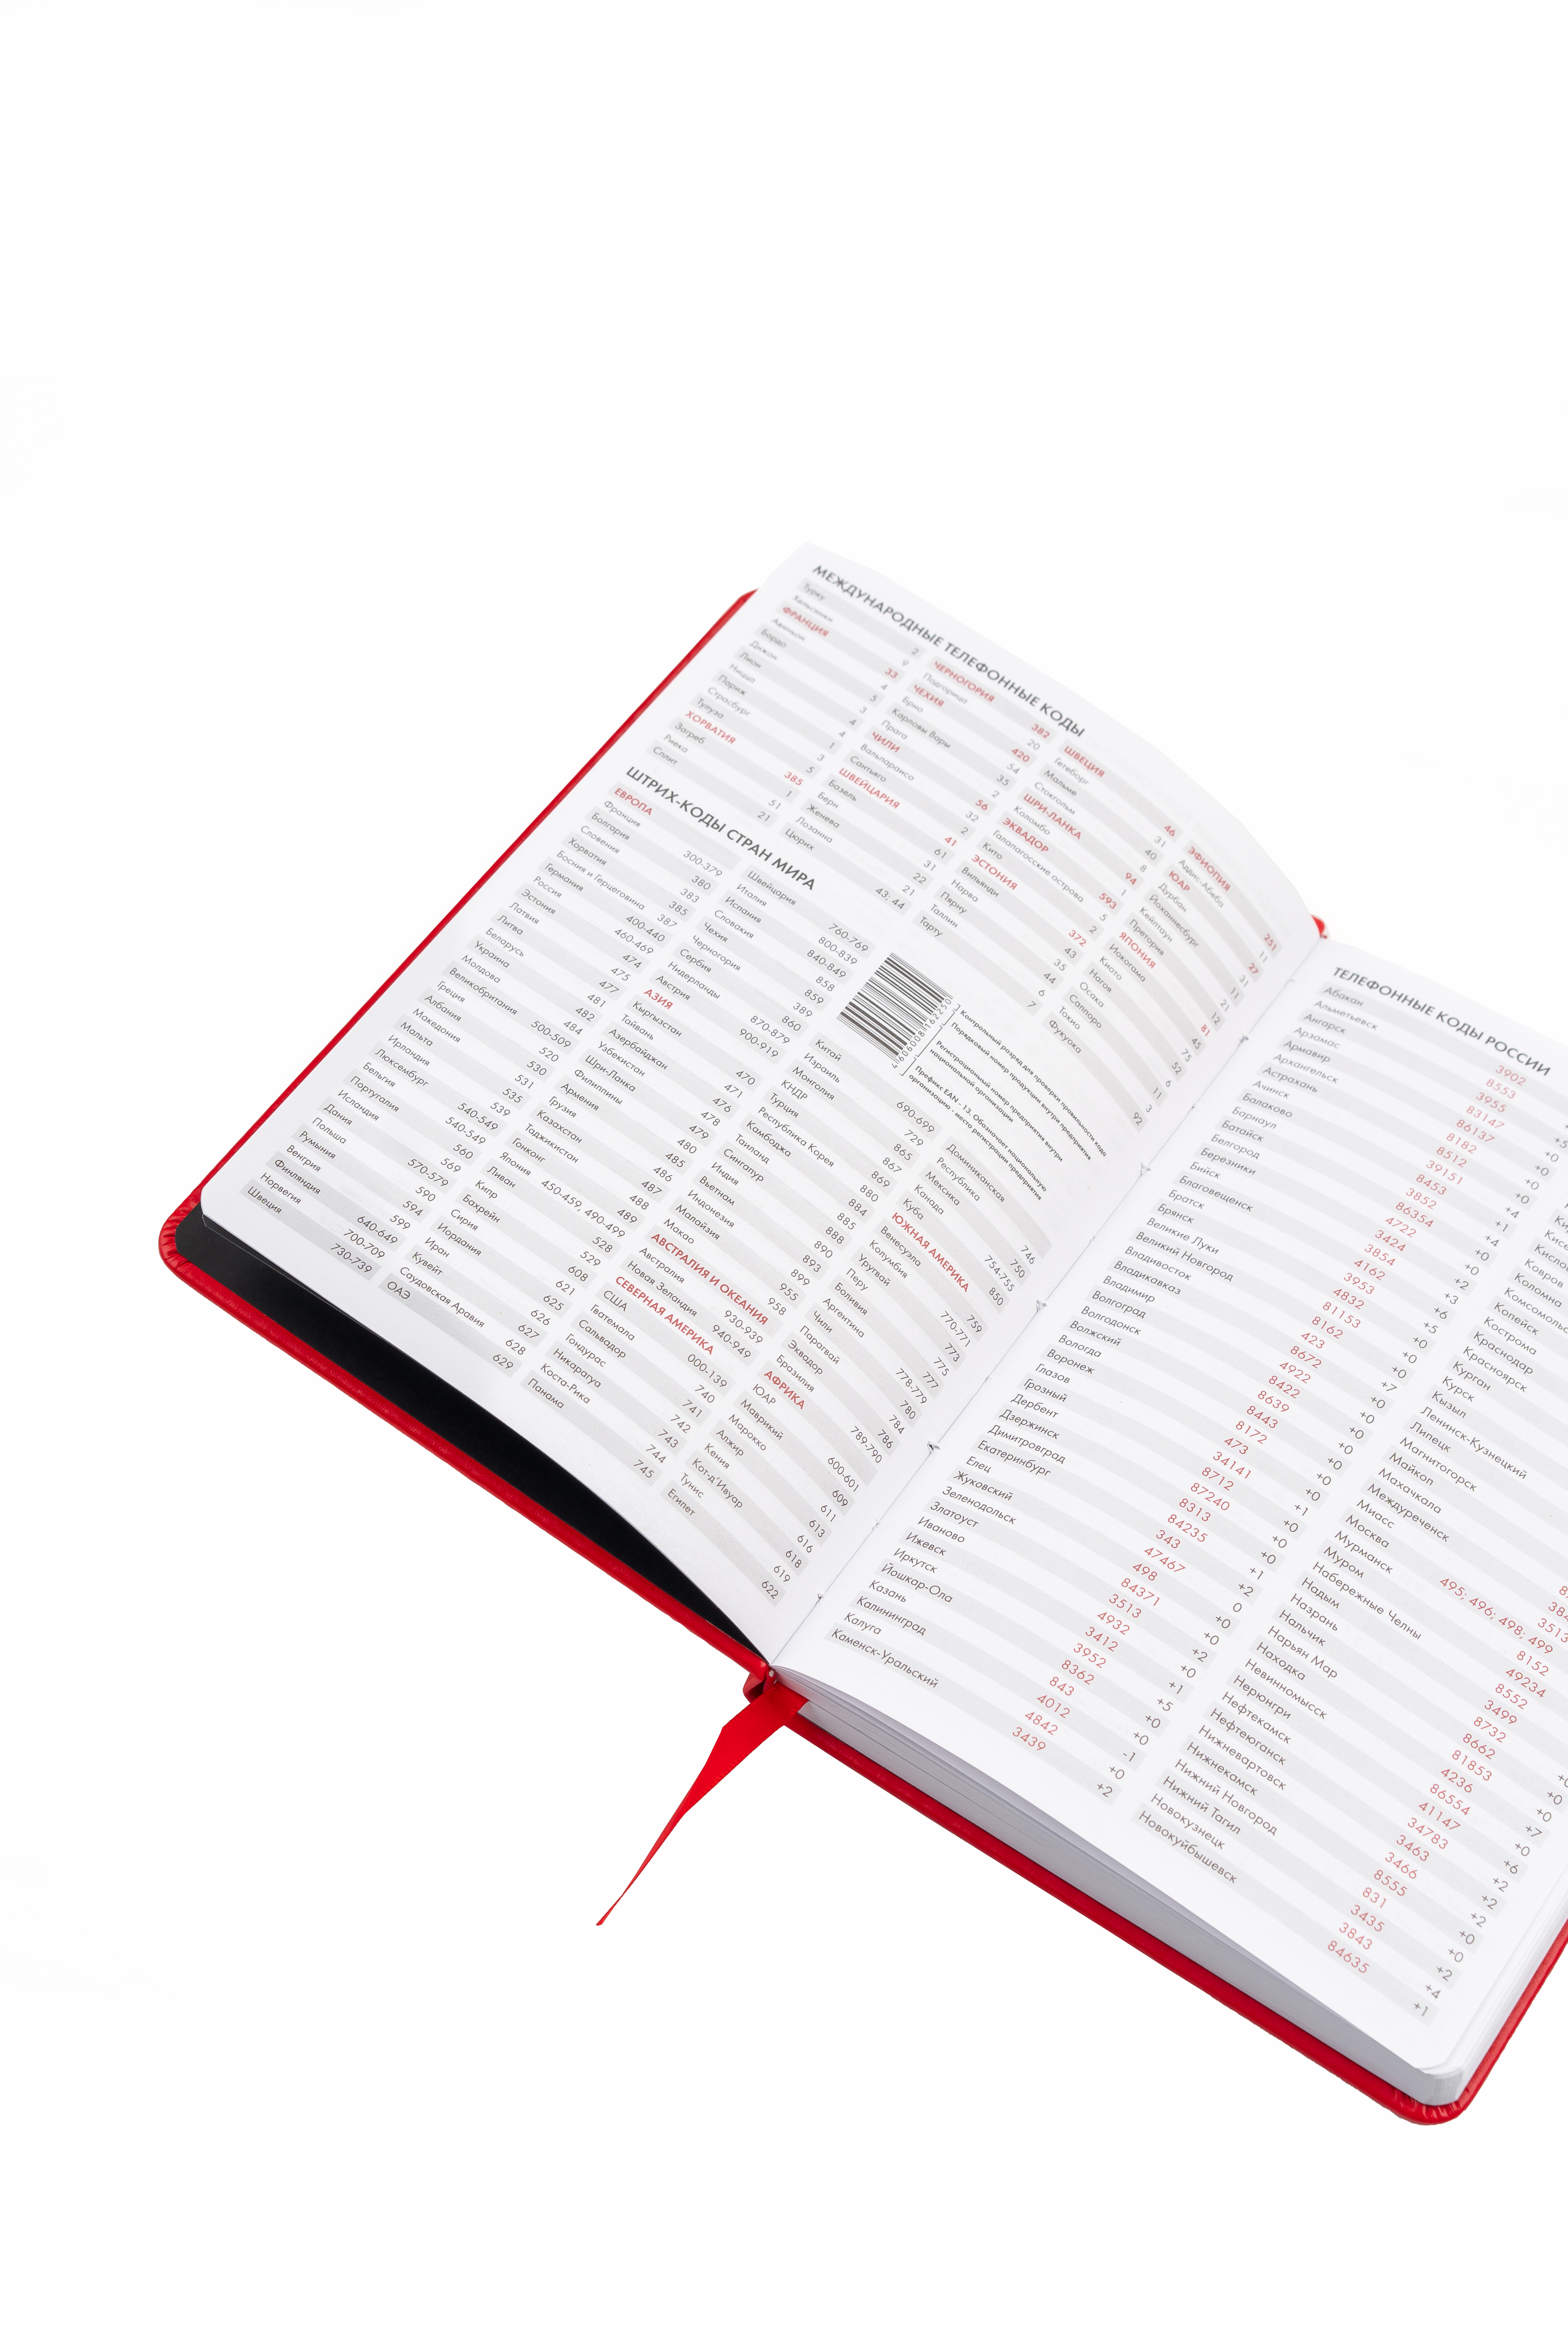 МЕЖДУНАРОДНЫЕ ТЕЛЕФОННЫЕ КОДЫ
Турку 2
Хельсинки 9
ФРАНЦИЯ 33
Авиньон 4
Бордо 5
Дижон 3
Лион 4
Ницца 4
Париж 1
Страсбург 3
Тулуза 5
ХОРВАТИЯ 385
Загреб 1
Риека 51
Сплит 21
ЧЕРНОГОРИЯ 382
Подгорица 20
ЧЕХИЯ 420
Брно 54
Карловы Вары 35
Прага 2
ЧИЛИ 56
Вальпараисо 32
Сантьяго 2
ШВЕЙЦАРИЯ 41
Базель 61
Берн 31
Женева 22
Лозанна 21
Цюрих 43; 44
ШВЕЦИЯ 46
Гетеборг 31
Мальме 40
Стокгольм 8
ШРИ-ЛАНКА 94
Коломбо 1
ЭКВАДОР 593
Галапагосские острова 5
Кито 2
ЭСТОНИЯ 372
Вильянди 43
Нарва 35
Пярну 44
Таллин 6
Тарту 7
ЭФИОПИЯ 251
Аддис-Абеба 11
ЮАР 27
Дурбан 31
Йоханнесбург 11
Кейптаун 21
Претория 12
ЯПОНИЯ 81
Иокогама 45
Киото 75
Нагоя 52
Осака 6
Саппоро 11
Токио 3
Фукуока 92
ШТРИХ-КОДЫ СТРАН МИРА
ЕВРОПА
Франция 300-379
Болгария 380
Словения 383
Хорватия 385
Босния и Герцеговина 387
Германия 400-440
Россия 460-469
Эстония 474
Латвия 475
Литва 477
Беларусь 481
Украина 482
Молдова 484
Великобритания 500-509
Греция 520
Албания 530
Македония 531
Мальта 535
Ирландия 539
Люксембург 540-549
Бельгия 540-549
Португалия 560
Исландия 569
Дания 570-579
Польша 590
Румыния 594
Венгрия 599
Финляндия 640-649
Норвегия 700-709
Швеция 730-739
Швейцария 760-769
Италия 800-839
Испания 840-849
Словакия 858
Чехия 859
Черногория 389
Сербия 860
Нидерланды 870-879
Австрия 900-919
АЗИЯ
Кыргызстан 470
Тайвань 471
Азербайджан 476
Узбекистан 478
Шри-Ланка 479
Филиппины 480
Армения 485
Грузия 486
Казахстан 487
Таджикистан 488
Гонконг 489
Япония 450-459, 490-499
Ливан 528
Кипр 529
Бахрейн 608
Сирия 621
Иордания 625
Иран 626
Кувейт 627
Саудовская Аравия 628
ОАЭ 629
Китай 690-699
Израиль 729
Монголия 865
КНДР 867
Турция 869
Республика Корея 880
Камбоджа 884
Таиланд 885
Сингапур 888
Индия 890
Вьетнам 893
Индонезия 899
Малайзия 955
Макао 958
АВСТРАЛИЯ И ОКЕАНИЯ
Австралия 930-939
Новая Зеландия 940-949
СЕВЕРНАЯ АМЕРИКА
США 000-139
Гватемала 740
Сальвадор 741
Гондурас 742
Никарагуа 743
Коста-Рика 744
Панама 745
4606008162250
Контрольный разряд для проверки правильности кода
Порядковый номер продукции внутри предприятия
Регистрационный номер предприятия внутри
национальной организации
Префикс EAN - 13. Обозначает национальную
организацию - место регистрации предприятия
Доминиканская
Республика 746
Мексика 750
Канада 754-755
Куба 850
ЮЖНАЯ АМЕРИКА
Венесуэла 770-771
Колумбия
Уругвай 773
Перу 775
Боливия 777
Аргентина 778-779
Чили 780
Парагвай 784
Эквадор 786
Бразилия 789-790
АФРИКА
ЮАР 600-601
Маврикий 609
Марокко 611
Алжир 613
Кения 616
Кот-д'Ивуар 618
Тунис 619
Египет 622
ТЕЛЕФОННЫЕ КОДЫ РОССИИ
Абакан 3902
Альметьевск 8553
Ангарск 3955 +5
Арзамас 83147 +0
Армавир 86137 +0
Архангельск 8182 +0
Астрахань 8512
Ачинск 39151 +4
Балаково 8453 +1
Барнаул 3852 +4
Батайск 86354 +0
Белгород 4722 +0
Березники 3424 +2
Бийск 3854 +3
Благовещенск 4162 +6
Братск 3953 +5
Брянск 4832 +0
Великие Луки 81153 +0
Великий Новгород 8162 +0
Владивосток 423 +7
Владикавказ 8672 +0
Владимир 4922 +0
Волгоград 8422 +0
Волгодонск 8639 +0
Волжский 8443 +0
Вологда 8172 +0
Воронеж 473 +0
Глазов 34141 +1
Грозный 8712 +0
Дербент 87240 +0
Дзержинск 8313 +0
Димитровград 84235 +1
Екатеринбург 343 +2
Елец 47467 0
Жуковский 498 +0
Зеленодольск 84371 +0
Златоуст 3513 +2
Иваново 4932 +0
Ижевск 3412 +1
Иркутск 3952 +5
Йошкар-Ола 8362 +0
Казань 843 +0
Калининград 4012 -1
Калуга 4842 +0
Каменск-Уральский 3439 +2
Ковров
Кострома
Краснодар
Красноярск
Курган
Курск
Кызыл
Ленинск-Кузнецкий
Липецк
Магнитогорск
Майкоп
Махачкала
Междуреченск
Миасс 3513
Москва 495; 496; 498; 499
Мурманск 8152
Муром 49234
Набережные Челны 8552
Надым 3499
Назрань 8732
Нальчик 8662
Нарьян Мар 81853
Находка 4236 +7
Невинномысск 86554 +0
Нерюнгри 41147 +6
Нефтекамск 34783 +2
Нефтеюганск 3463 +2
Нижневартовск 3466 +2
Нижнекамск 8555 +0
Нижний Новгород 831 +0
Нижний Тагил 3435 +2
Новокузнецк 3843 +4
Новокуйбышевск 84635 +1